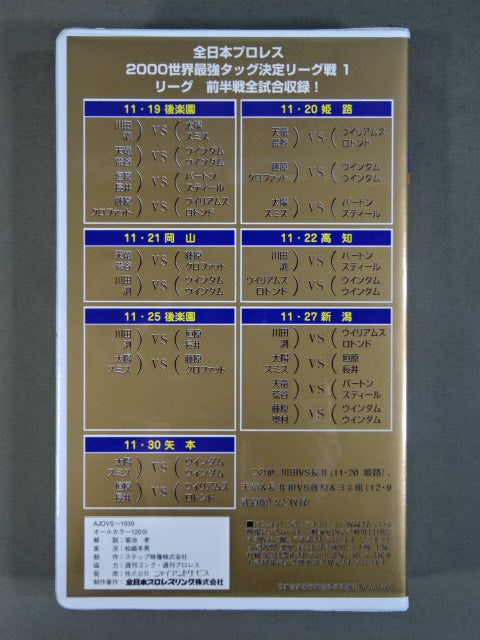 全日本プロレス
2000世界最強タッグ決定リーグ戦 1
リーグ 前半戦全試合収録!
11・19後楽園
川田 渕 VS 太陽 スミス
天竜 荒谷 VS ウインダム ウインダム
恒原 長井 VS バートン スティール
藤原 クロファット VS ウイリアムス ロトンド
11・20 姫 路
天竜 荒谷 VS ウイリアムス ロトンド
藤原 クロファット VS ウインダム ウインダム
太陽 スミス VS バートン スティール
11・21 岡 山
天竜 荒谷 VS 藤原 クロファット
川田 渕 VS ウインダム ウインダム
11・22 高 知
川田 渕 VS バートン スティール
ウイリアムス ロトンド VS ウインダム ウインダム
11・25 後楽園
川田 渕 VS 恒原 長井
太陽 スミス VS 藤原 クロファット
11・27 新 潟
川田 渕 VS ウイリアムス ロトンド
太陽 スミス VS 恒原 長井
天竜 荒谷 VS バートン スティール
藤原 奥村 VS ウインダム ウインダム
11・30 矢 本
太陽 スミス VS ウインダム ウインダム
恒原 長井 VS ウイリアムス ロトンド
この他、川田VS長井(11・20 姫路)、
天竜&長井組VS藤原&ヨネ組(12・9
武道館)など収録!
AJOVS-1039
オールカラー120分
解 説:菊池 孝
実 況:松崎年男
制 作:ステップ映像株式会社
協 力:週刊ゴング・週刊プロレス
発 売:株式会社 ジャイアントサービス
制作著作:全日本プロレスリング株式会社